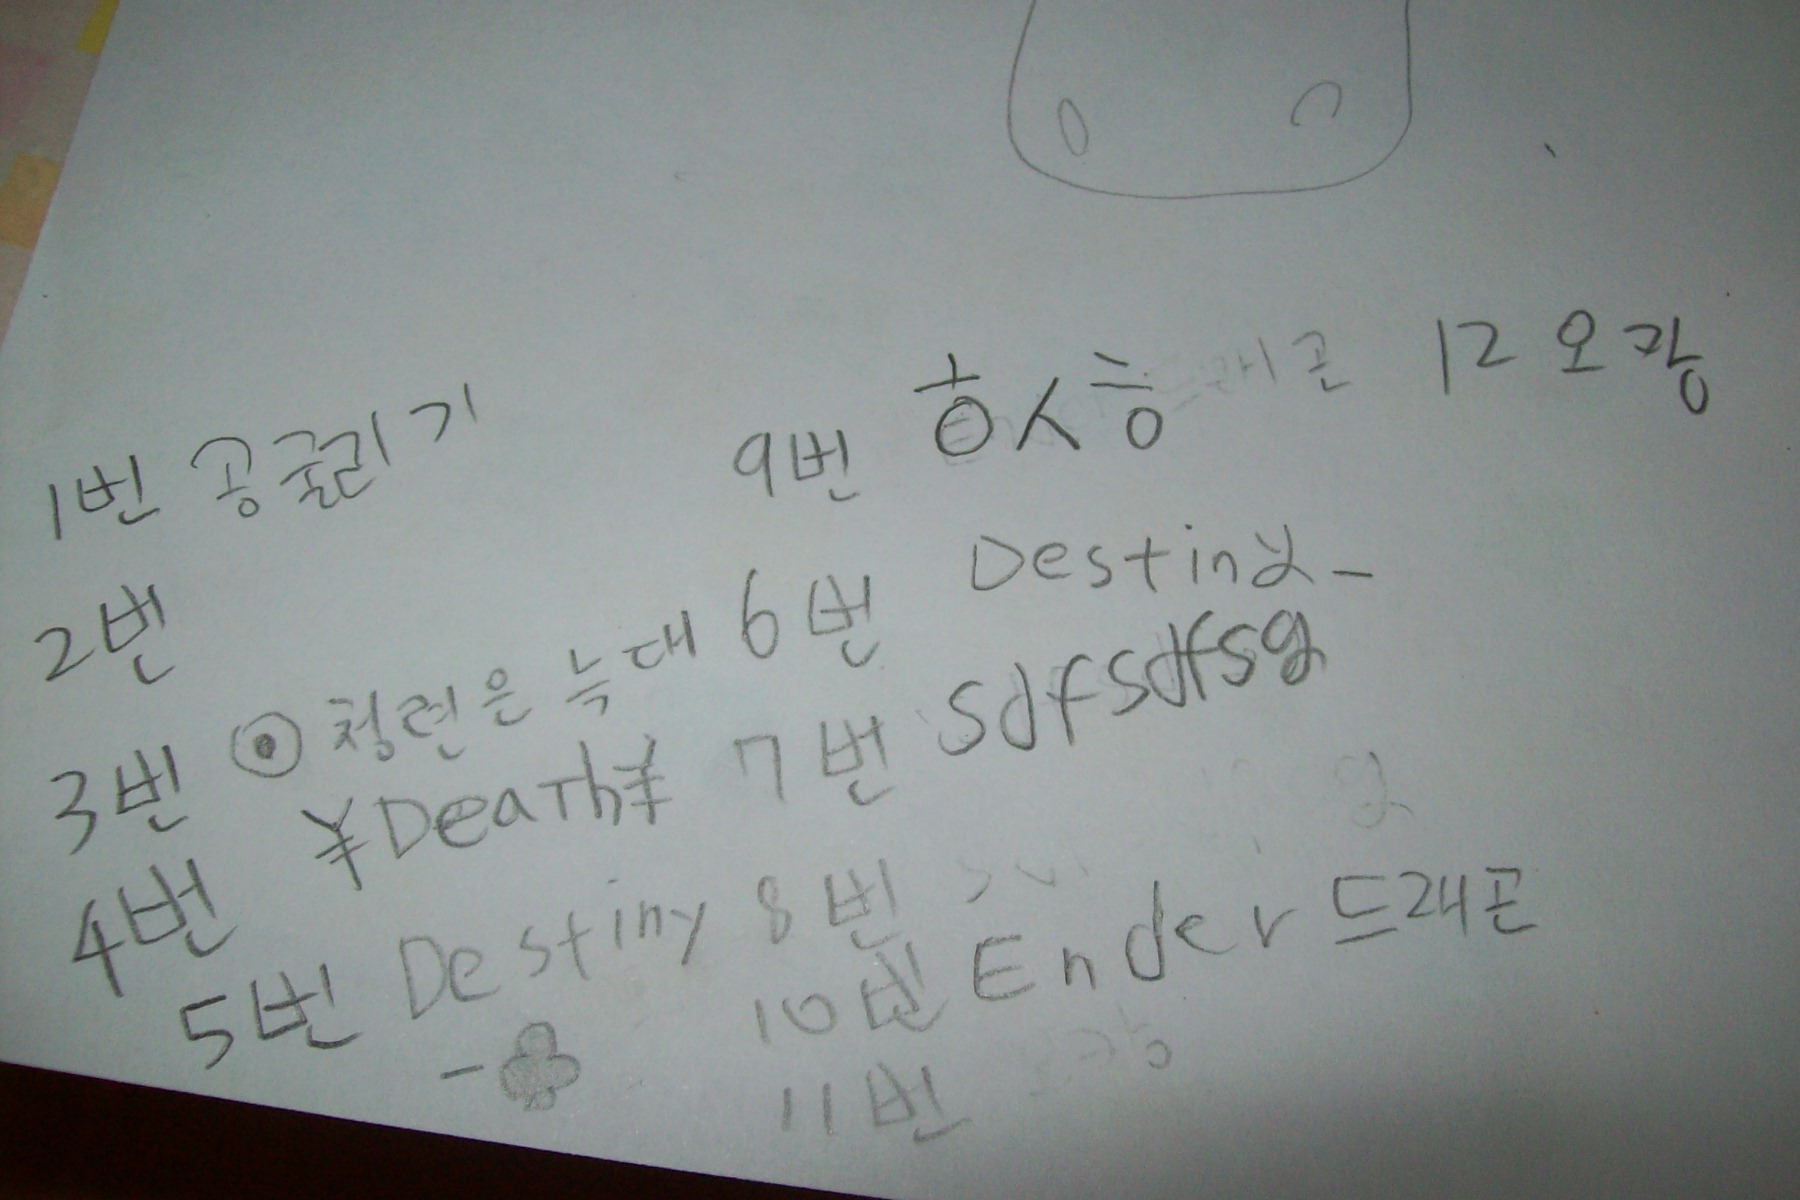 1번 공굴리기
2번
3번 ⊙청련은늑대
4번 ¥Death¥
5번 Destiny
-♣
9번 호ㅅ흐
6번 Destiny_
7번 sdfsdfsg
8번
10번 Ender드래곤
11번
12 오광